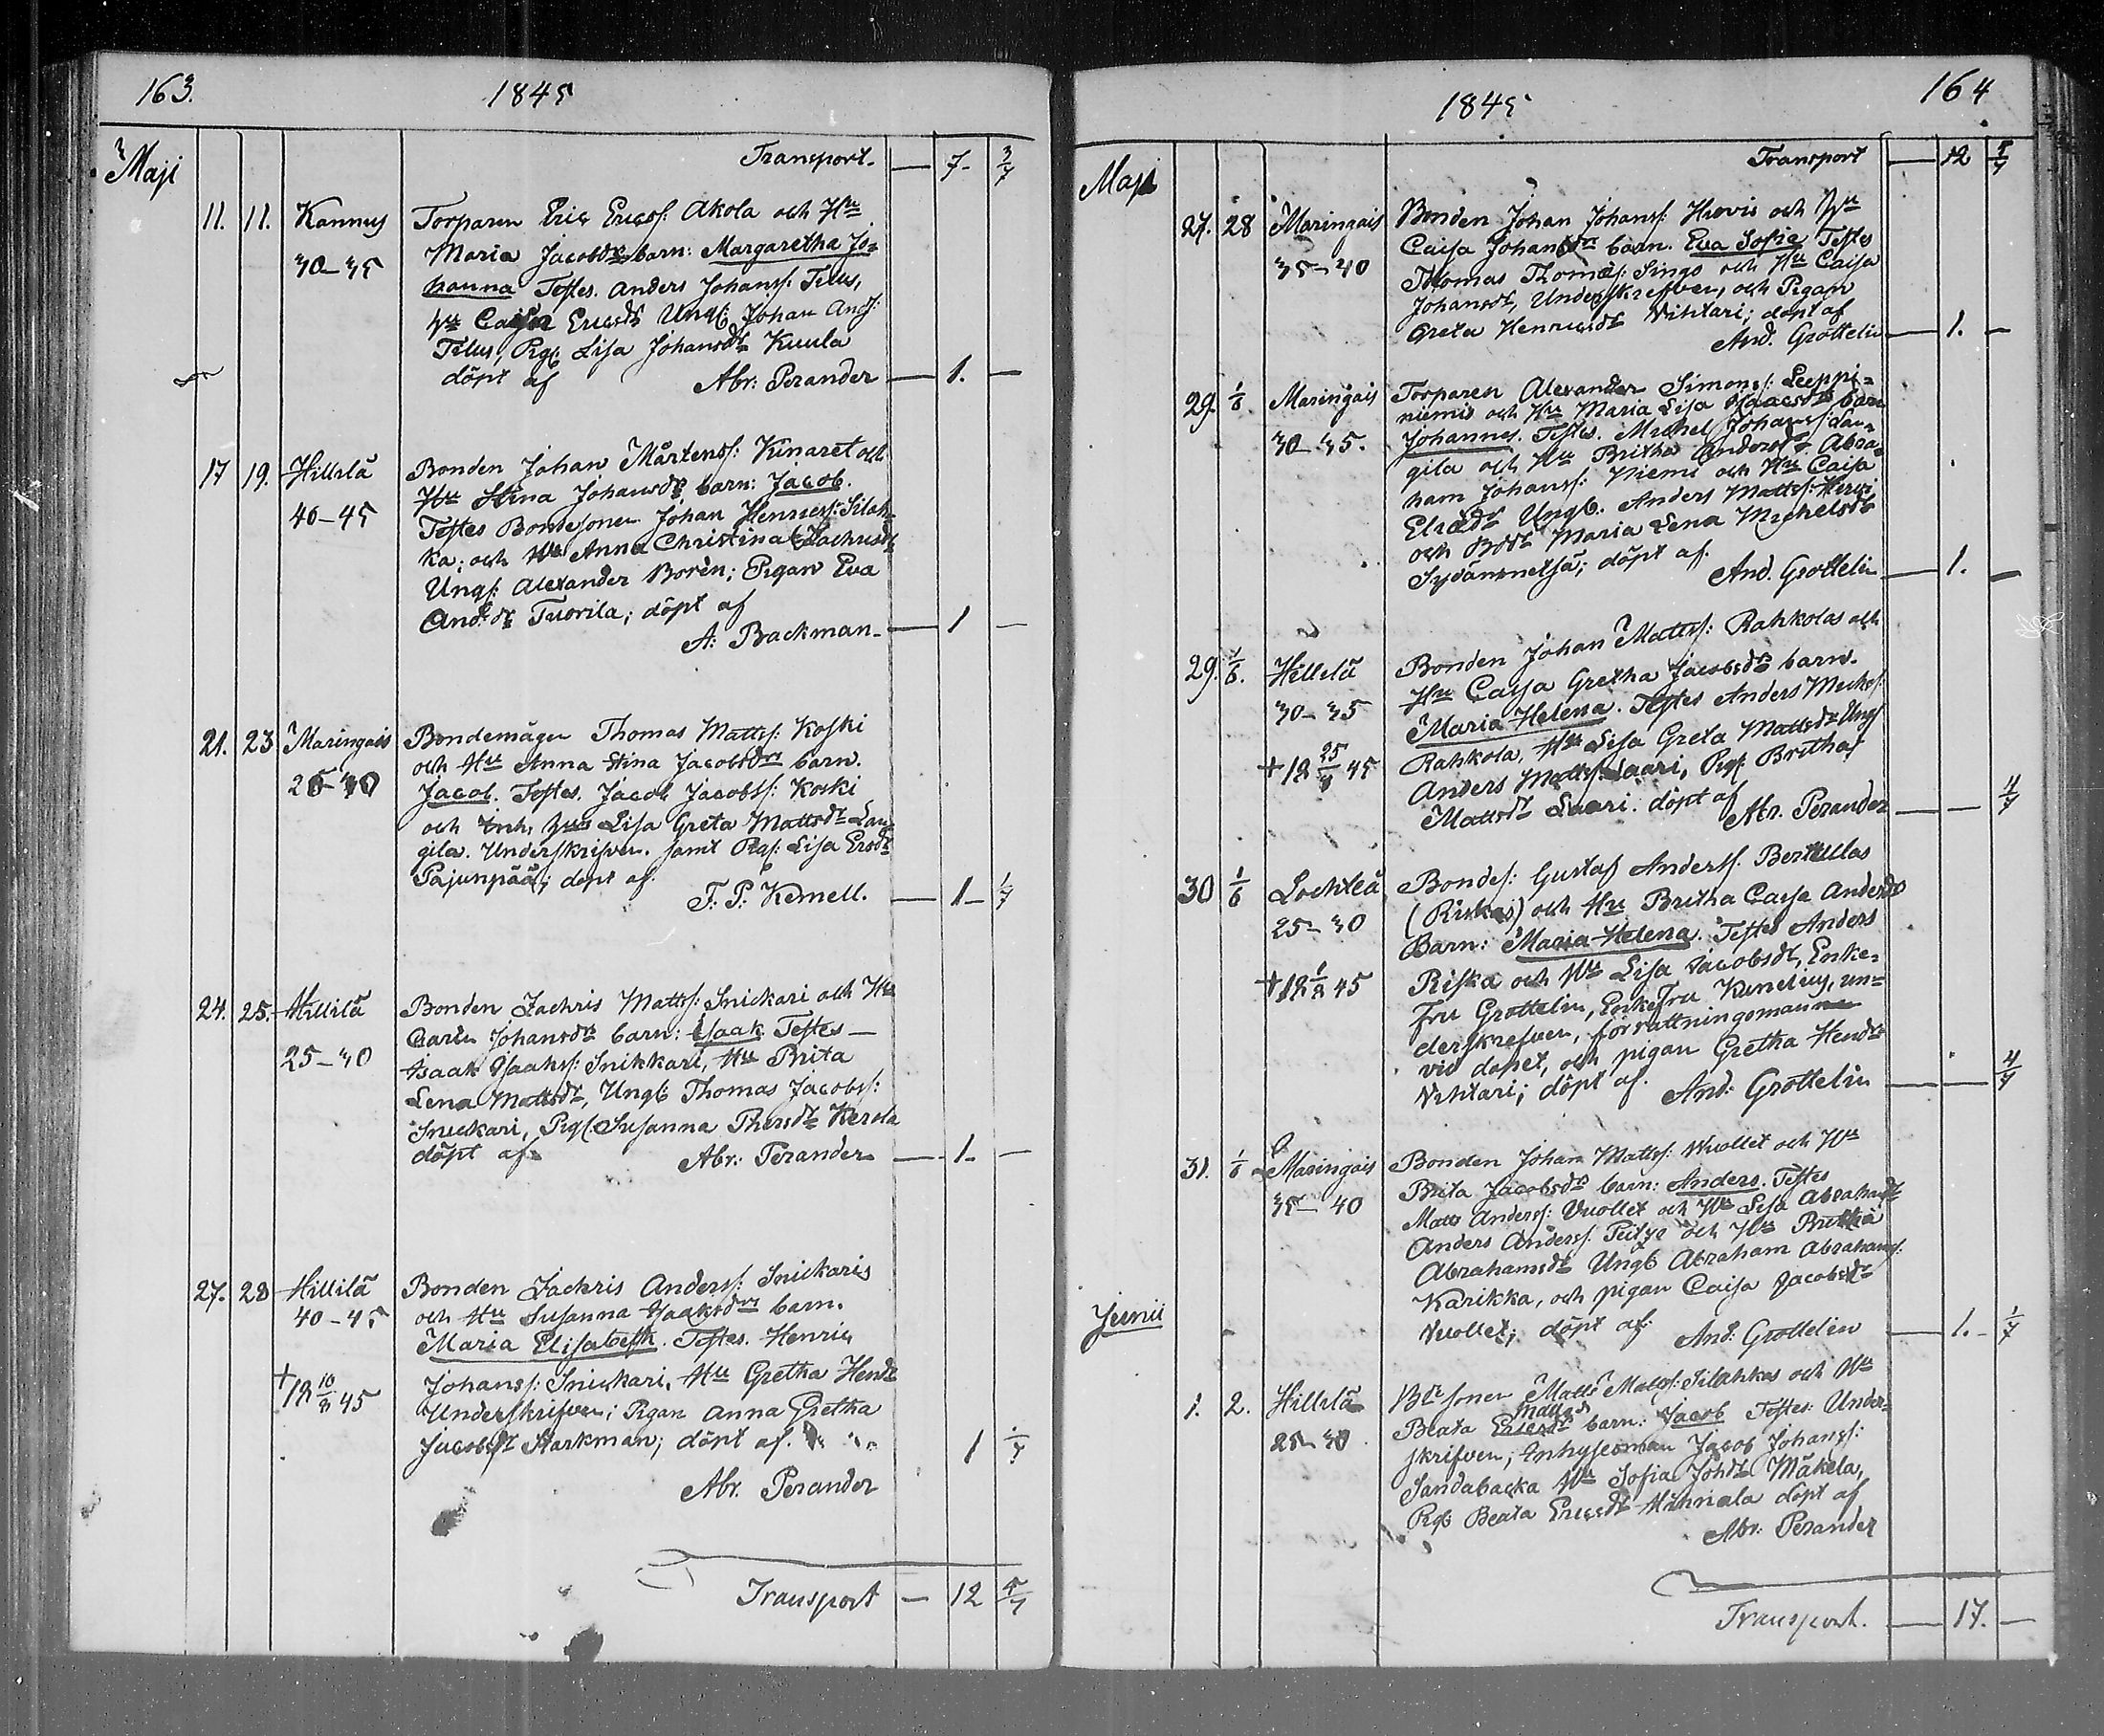 163. 1845
Maji Transport. — 7 - 3/7
11. 11. Kannus Torparen Eric Ericss: Akola och Hu
30-35 Maria Jacobsdr barn: Margaretha Jo=
hanna Testes. Anders Johanss: Tilus,
Hu Caisa Ericsdr Ungk: Johan Ands:
Tilus, Pig: Lisa Johansdr Kuula
döpt af Abr: Perander — 1. —
17 19. Hillilä Bonden Johan Mårtenss: Kinaret och
40-45 Hu Stina Johansdr barn: Jacob.
Testes Bondesonen Johan Henricss: Silah=
ka; och Hu Anna Christina Zachrisdr
Ungk: Alexander Borèn; Pigan Eva
And: dr Tuorila; döpt af
A: Backman — 1 —
21. 23 Maringais Bondemågen Thomas Mattss: Koski
och Hu Anna Stina Jacobsdr barn.
Jacob. Testes. Jacob Jacobss: Koski
och Inh. Hu Lisa Greta Mattsdr Lau=
gila. Underskrifven. samt Pig: Lisa Ersdr
Pajunpää; döpt af
F: P: Kemell. — 1 - 1/7
24. 25. Hillilä Bonden Zachris Mattss: Snickari och Hu
25-30 Carin Johansdr barn: Isaak Testes —
Isaak Isaakss: Snikkari, Hu Brita
Lena Mattsdr, Ungk: Thomas Jacobss:
Snickari, Pig: Susanna Thersdr Kerola
döpt af Abr: Perander — 1 - —
27. 28 Hillilä Bonden Zachris Anderss: Snickaris
40-45 och Hu Susanna Isaaksdr barn.
Maria Elisabeth. Testes. Henric
†18 10/8 45 Johanss: Snickari, Hu Gretha Hendr
Underskrifven; Pigan Anna Gretha
Jacobsdr Starkman; döpt af
1 1/7
Abr. Perander
Transport — 12 5/7
1845 164
Maji Transport — 12 5/7
27. 28 Maringais Bonden Johan Johanss: Hrovis och Hu
35-40 Caisa Johansdr barn. Eva Sofie Testes
Thomas Thomass: Singo och Hu Caisa
Johansdr, Underskrefven, och Pigan
Greta Henricsdr Vihtari; döpt af
And. Grottelin — 1. —
29. 1/6 Maringais Torparen Alexander Simonss: Leppi=
niemis och Hu Maria Lisa Isaacsdr barn
30-35. Johannes. Testes. Michel Johanss: Lau=
gila och Hu Britha Andersdr Abra=
ham Johanss: Niemi och Hu Caisa
Eliædr Ungk: Anders Mattss: Hirvi
och Bdr Maria Lena Michelsdr
Sydänmetsä; döpt af
And. Grottelin — 1. —
29. 1/6. Hillilä Bonden Johan Mattss: Rahkolas och
30-35 Hu Caisa Gretha Jacobsdr barn.
Maria Helena. Testes Anders Michs:
Rahkola, Hu Lisa Greta Mattsdr Ungk
†18 25/9 45 Anders Mattss: Laari, Pig: Britha
Mattsdr Laari: döpt af Abr. Perander — — 4/7
30 1/6 Lochteå Bondes: Gustaf Anderss: Bertullas
25-30 (Riskas) och Hu Britha Caisa Andersdr
Barn: Maria Helena. Testes Anders
†18 1/8 45 Riska och Hu Lisa Jacobsdr, Enke=
fru Grottelin, Enkefru Kunelius, un=
derskrefven, förrättningsman
vid dopet, och pigan Gretha Hendr
Vihtari; döpt af And: Grottelin — — 4/7
31. 1/6 Maringais Bonden Johan Mattss: Wuollet och Hu
35-40 Brita Jacobsdr barn: Anders. Testes
Matts Anderss: Vuollet och Hu Lisa Abrahamsdr
Anders Anderss: Peitzo och Hu Britha
Abrahamsdr Ungk Abraham Abrahamss:
Karikka, och pigan Caisa Jacobsdr
Junii Vuollet; döpt af And: Grottelin — 1. - 1/7
1. 2. Hillilä Bdesonen Matts Matss: Silahkas och Hu
Mattsdr
25-30 Beata Ericsdr barn: Jacob Testes: Under=
skrifven; Inhysesman Jacob Johanss:
Sandabacka Hu Sofia Johdr Mäkelä,
Pig: Beata Ericsdr Hännälä döpt af
Abr. Perander
Transport. — 17. —